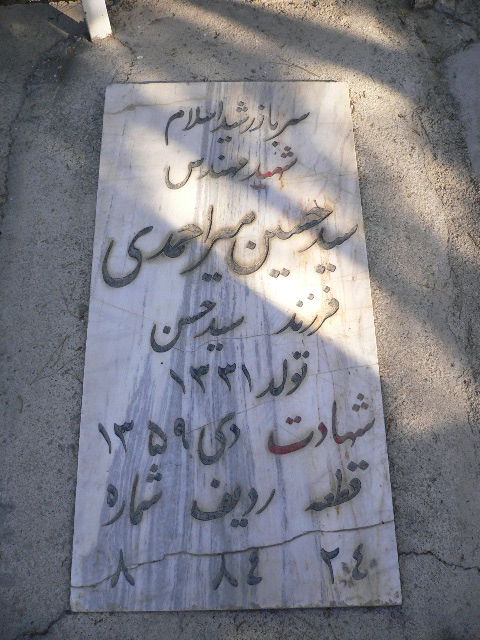 سرباز رشید اسلام
شهید مهندس
سید حسین میراحمدی
فرزند سید حسن
تولد ۱۳۳۱
شهادت دی ۱۳۵۹
قطعه ردیف شماره
۲۴ ۸۴ ۸